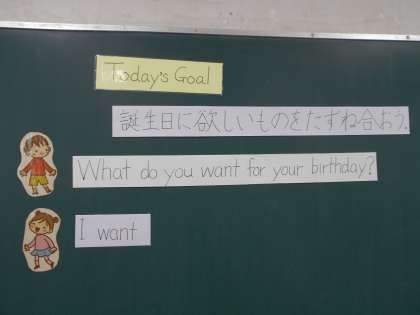 Today's Goal
誕生日に欲しいものをたずね合おう。
What do you want for your birthday?
I want